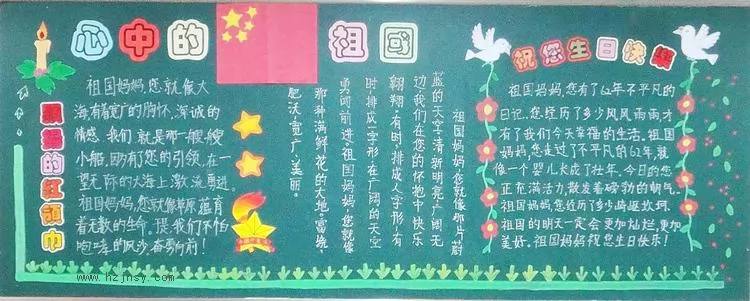 心中的
祖国
祝您生日快乐
飘扬的红领巾
祖国妈妈,您就像大
海,有着宽广的胸怀、深诚的
情感,我们就是那一艘艘
小船,助有您的引领,在一
望无际的大海上激流勇进。
祖国妈妈,您就像草原,蕴育
着无数的生命。是我们不怕
咆哮的风沙,奋勇向前!
祖国妈妈,您就像那片蔚
蓝的天空,清新明亮,广阔无
边,我们在您的怀抱中快乐
翱翔,有时,排成人字形,有
时,排成一字形,在广阔的天空
勇闯前进。祖国妈妈,您就像
那种满鲜花的大地。富饶,
肥沃,宽广,美丽。
祖国妈妈,您有了62年不平凡的
日记,您经历了多少风风雨雨,才
有了我们今天幸福的生活。祖国
妈妈,您走过了不平凡的62年,就
像一个婴儿长成了壮年,今日的您
正充满活力,散发着磅勃的朝气。
祖国妈妈,您经历了多少崎岖坎坷.
祖国的明天一定会更加灿烂,更加
美好。祖国妈妈祝您生日快乐!
www.hzjnsy.com